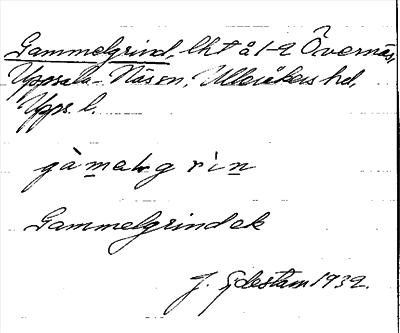 Gammelgrind, lht å 1-2 Övernäs,
Uppsala-Näs sn, Ulleråkers hd,
Upps. l.
gàmalgrìn
Gammelgrindek
J. 1932.